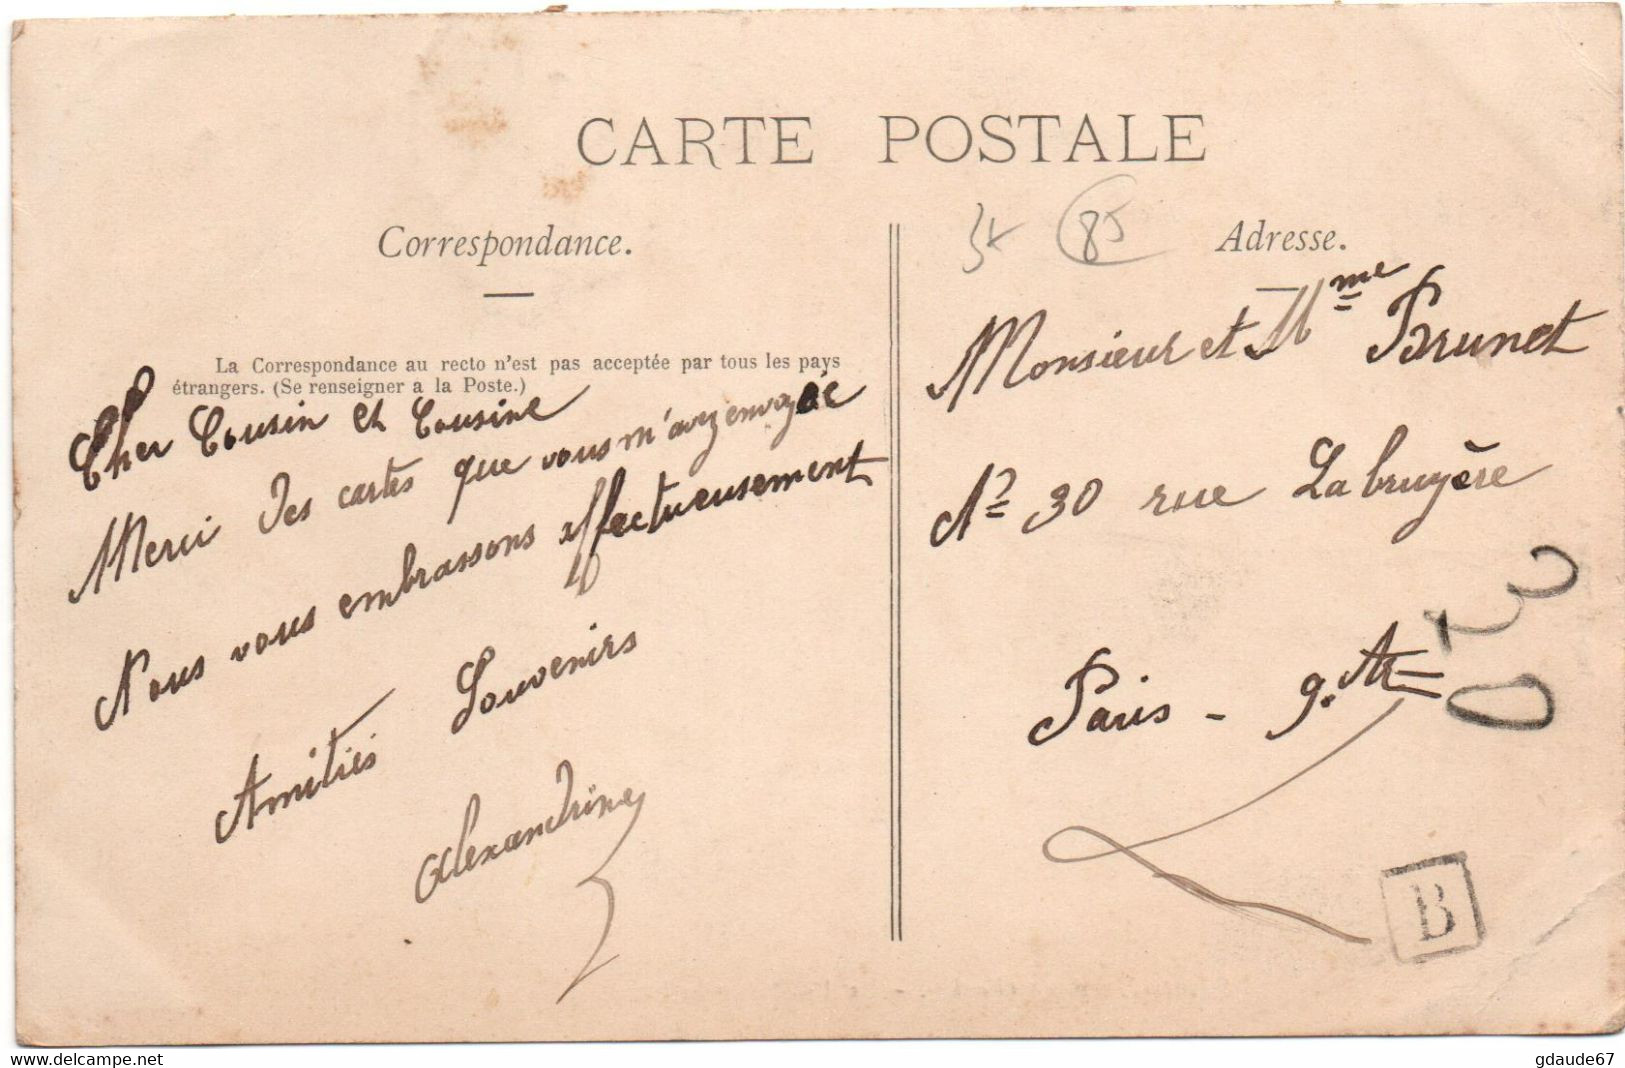 CARTE POSTALE
Correspondance.
La Correspondance au recto n'est pas acceptée par tous les pays
étrangers. (Se renseigner a la Poste.)
Cher Cousin et Cousine
Merci des cartes que vous m'avez envoyée
Nous vous embrassons affectueusement
Amitiés Souvenirs
Alexandrine
85
Adresse.
Monsieur et Mme Brunet
No 30 rue La bruyère
Paris - 9. Ar
B
delcampe.net
gdaude67